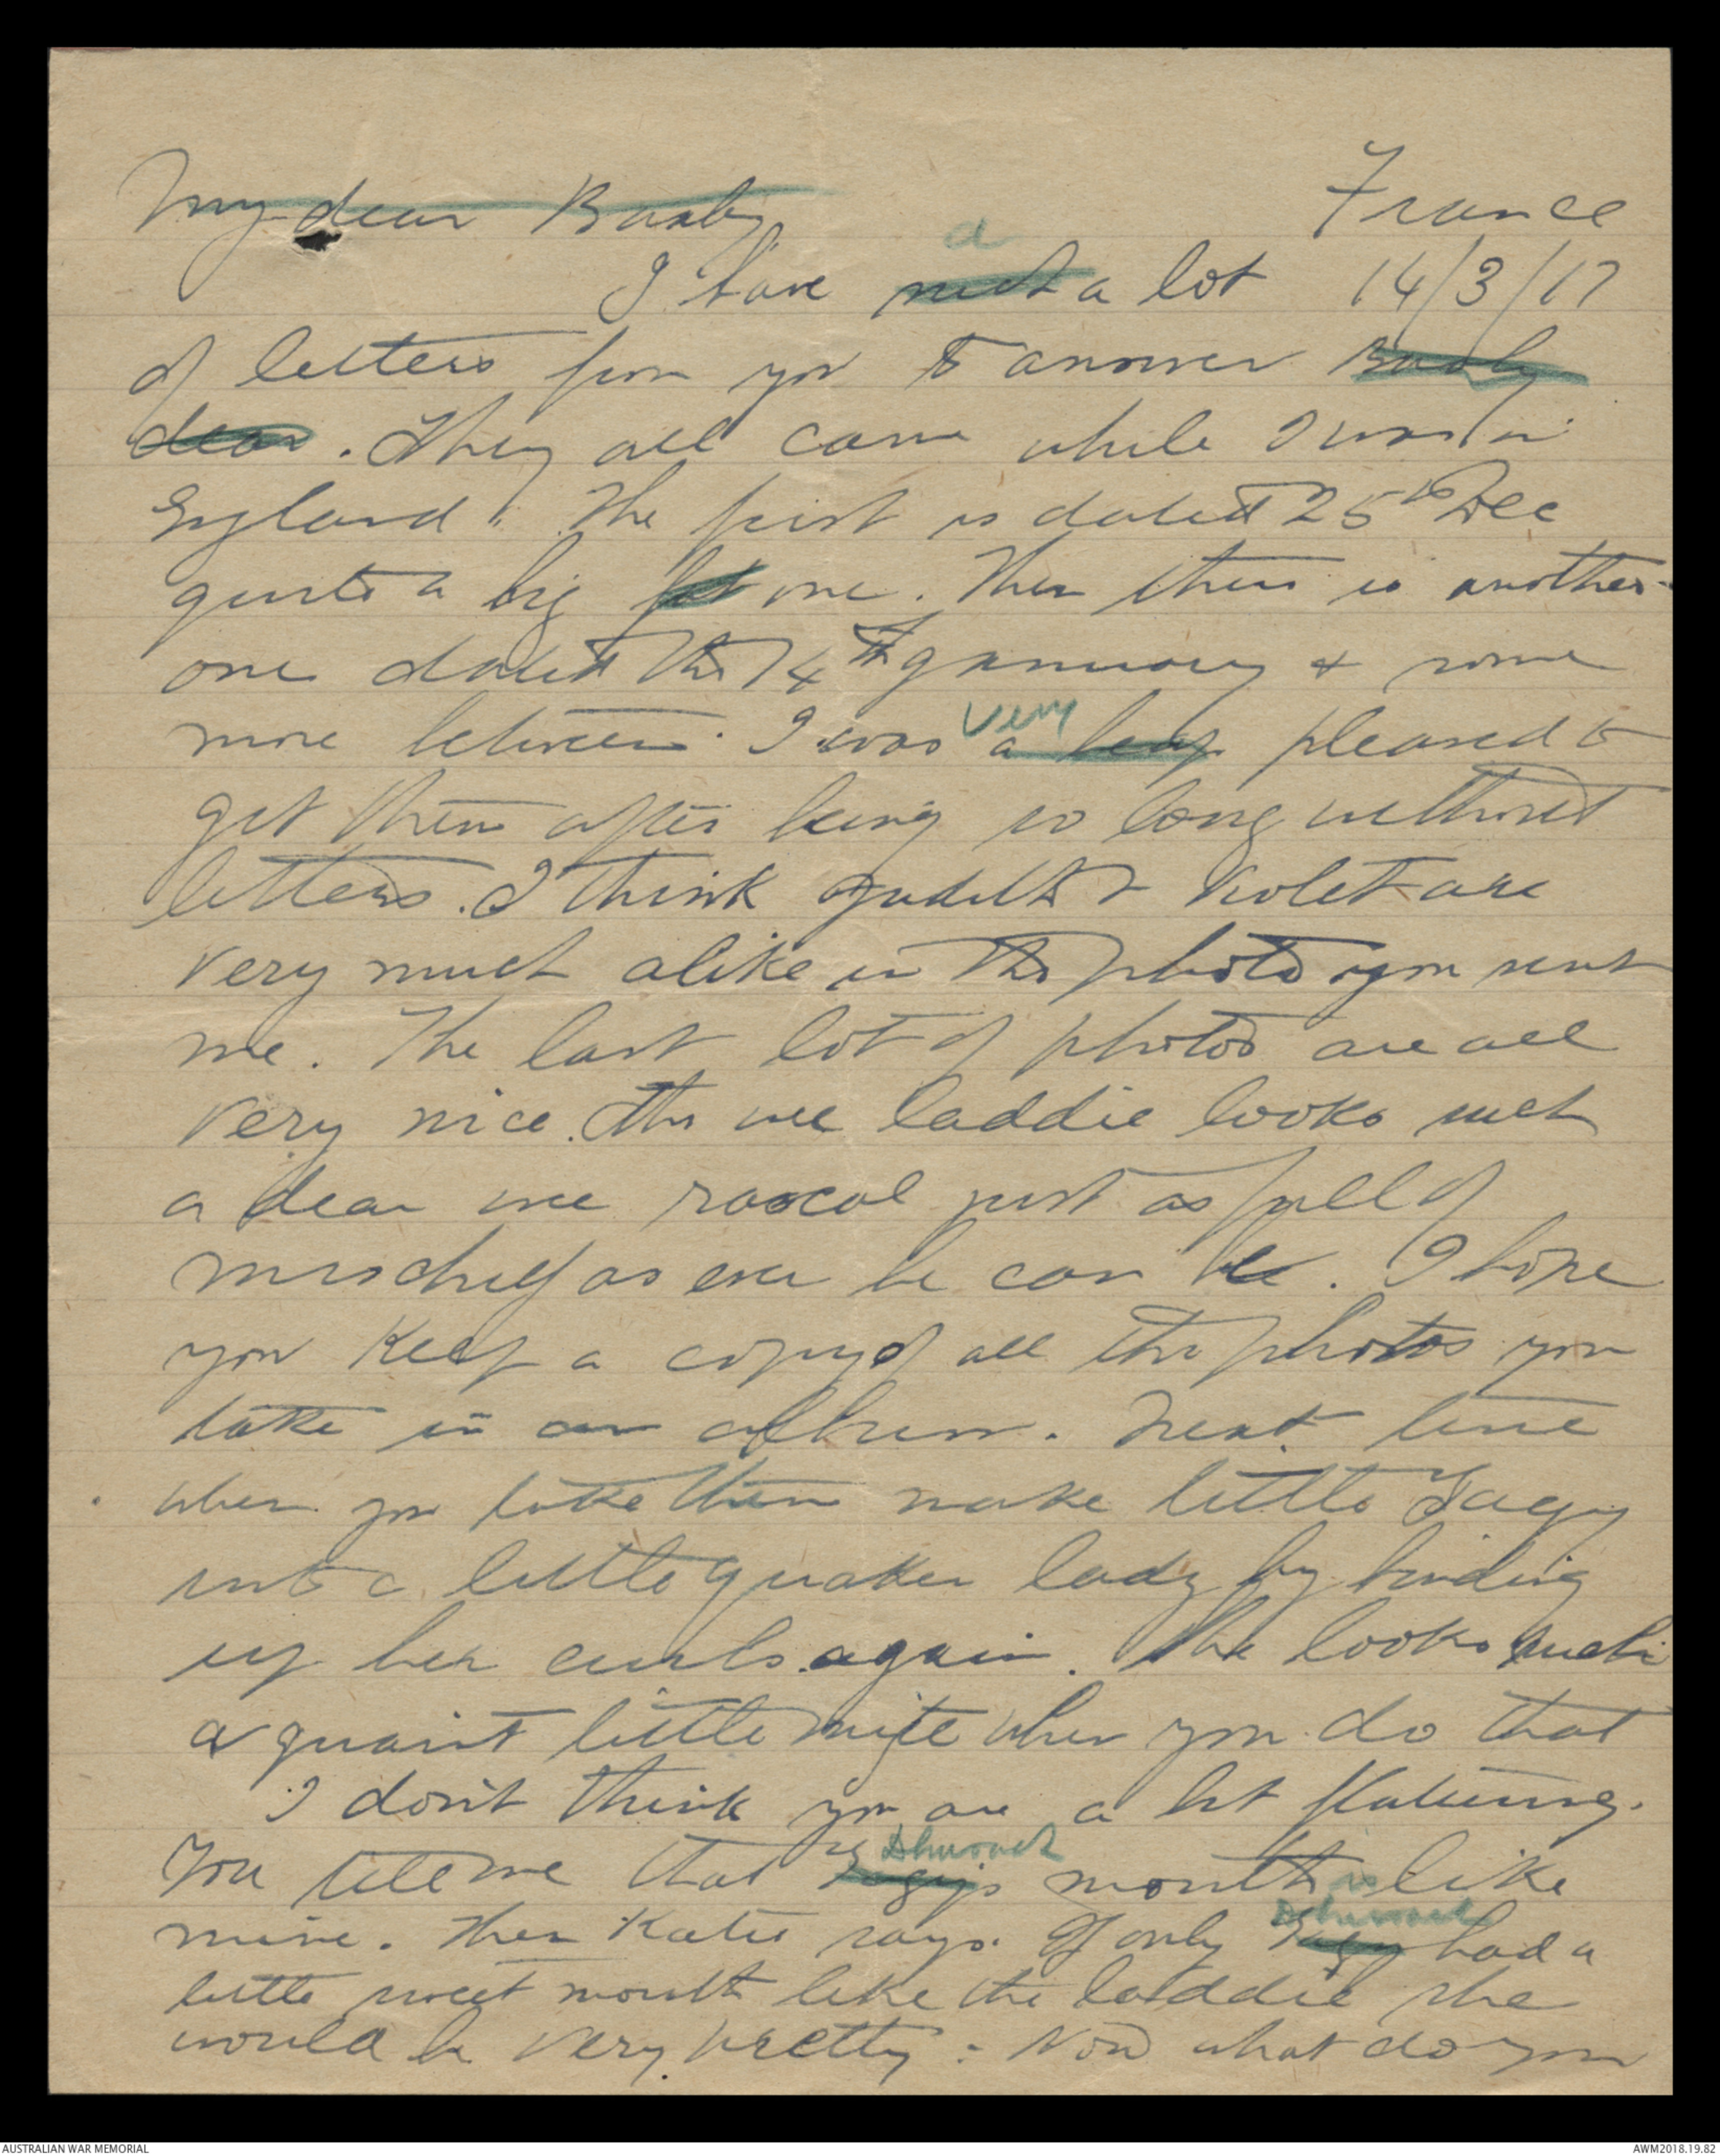 My dear Baaby France
I have such a a lot 14/3/17
of letters from you to answer Baaby
dear. They all came while I was in
England. The first is dated 25th Dec
quite a big fat one. Then there is another
one dated the 14th January & some
more between. I was very a heap pleased to
get them after being so long without
letters. I think Judith & Violet are
very much alike in the photo you sent
me. The last lot of photos are all
very nice. The wee laddie looks such
a dear wee rascal just as full of
mischief as ever he can be. I hope
you keep a copy of all the photos you
take in an album. Next time
when you take them make little Jagy
into a little quaker lady by binding
up her curls again. She looks such
a quaint little mite when you do that
I don't think you are a bit flattering.
You tell me that mouth is like
mine. Then Katie says. If only had a
little sweet mouth like the laddie she
would be very pretty. Now what do you
AUSTRALIAN WAR MEMORIAL AWM2018.19.82